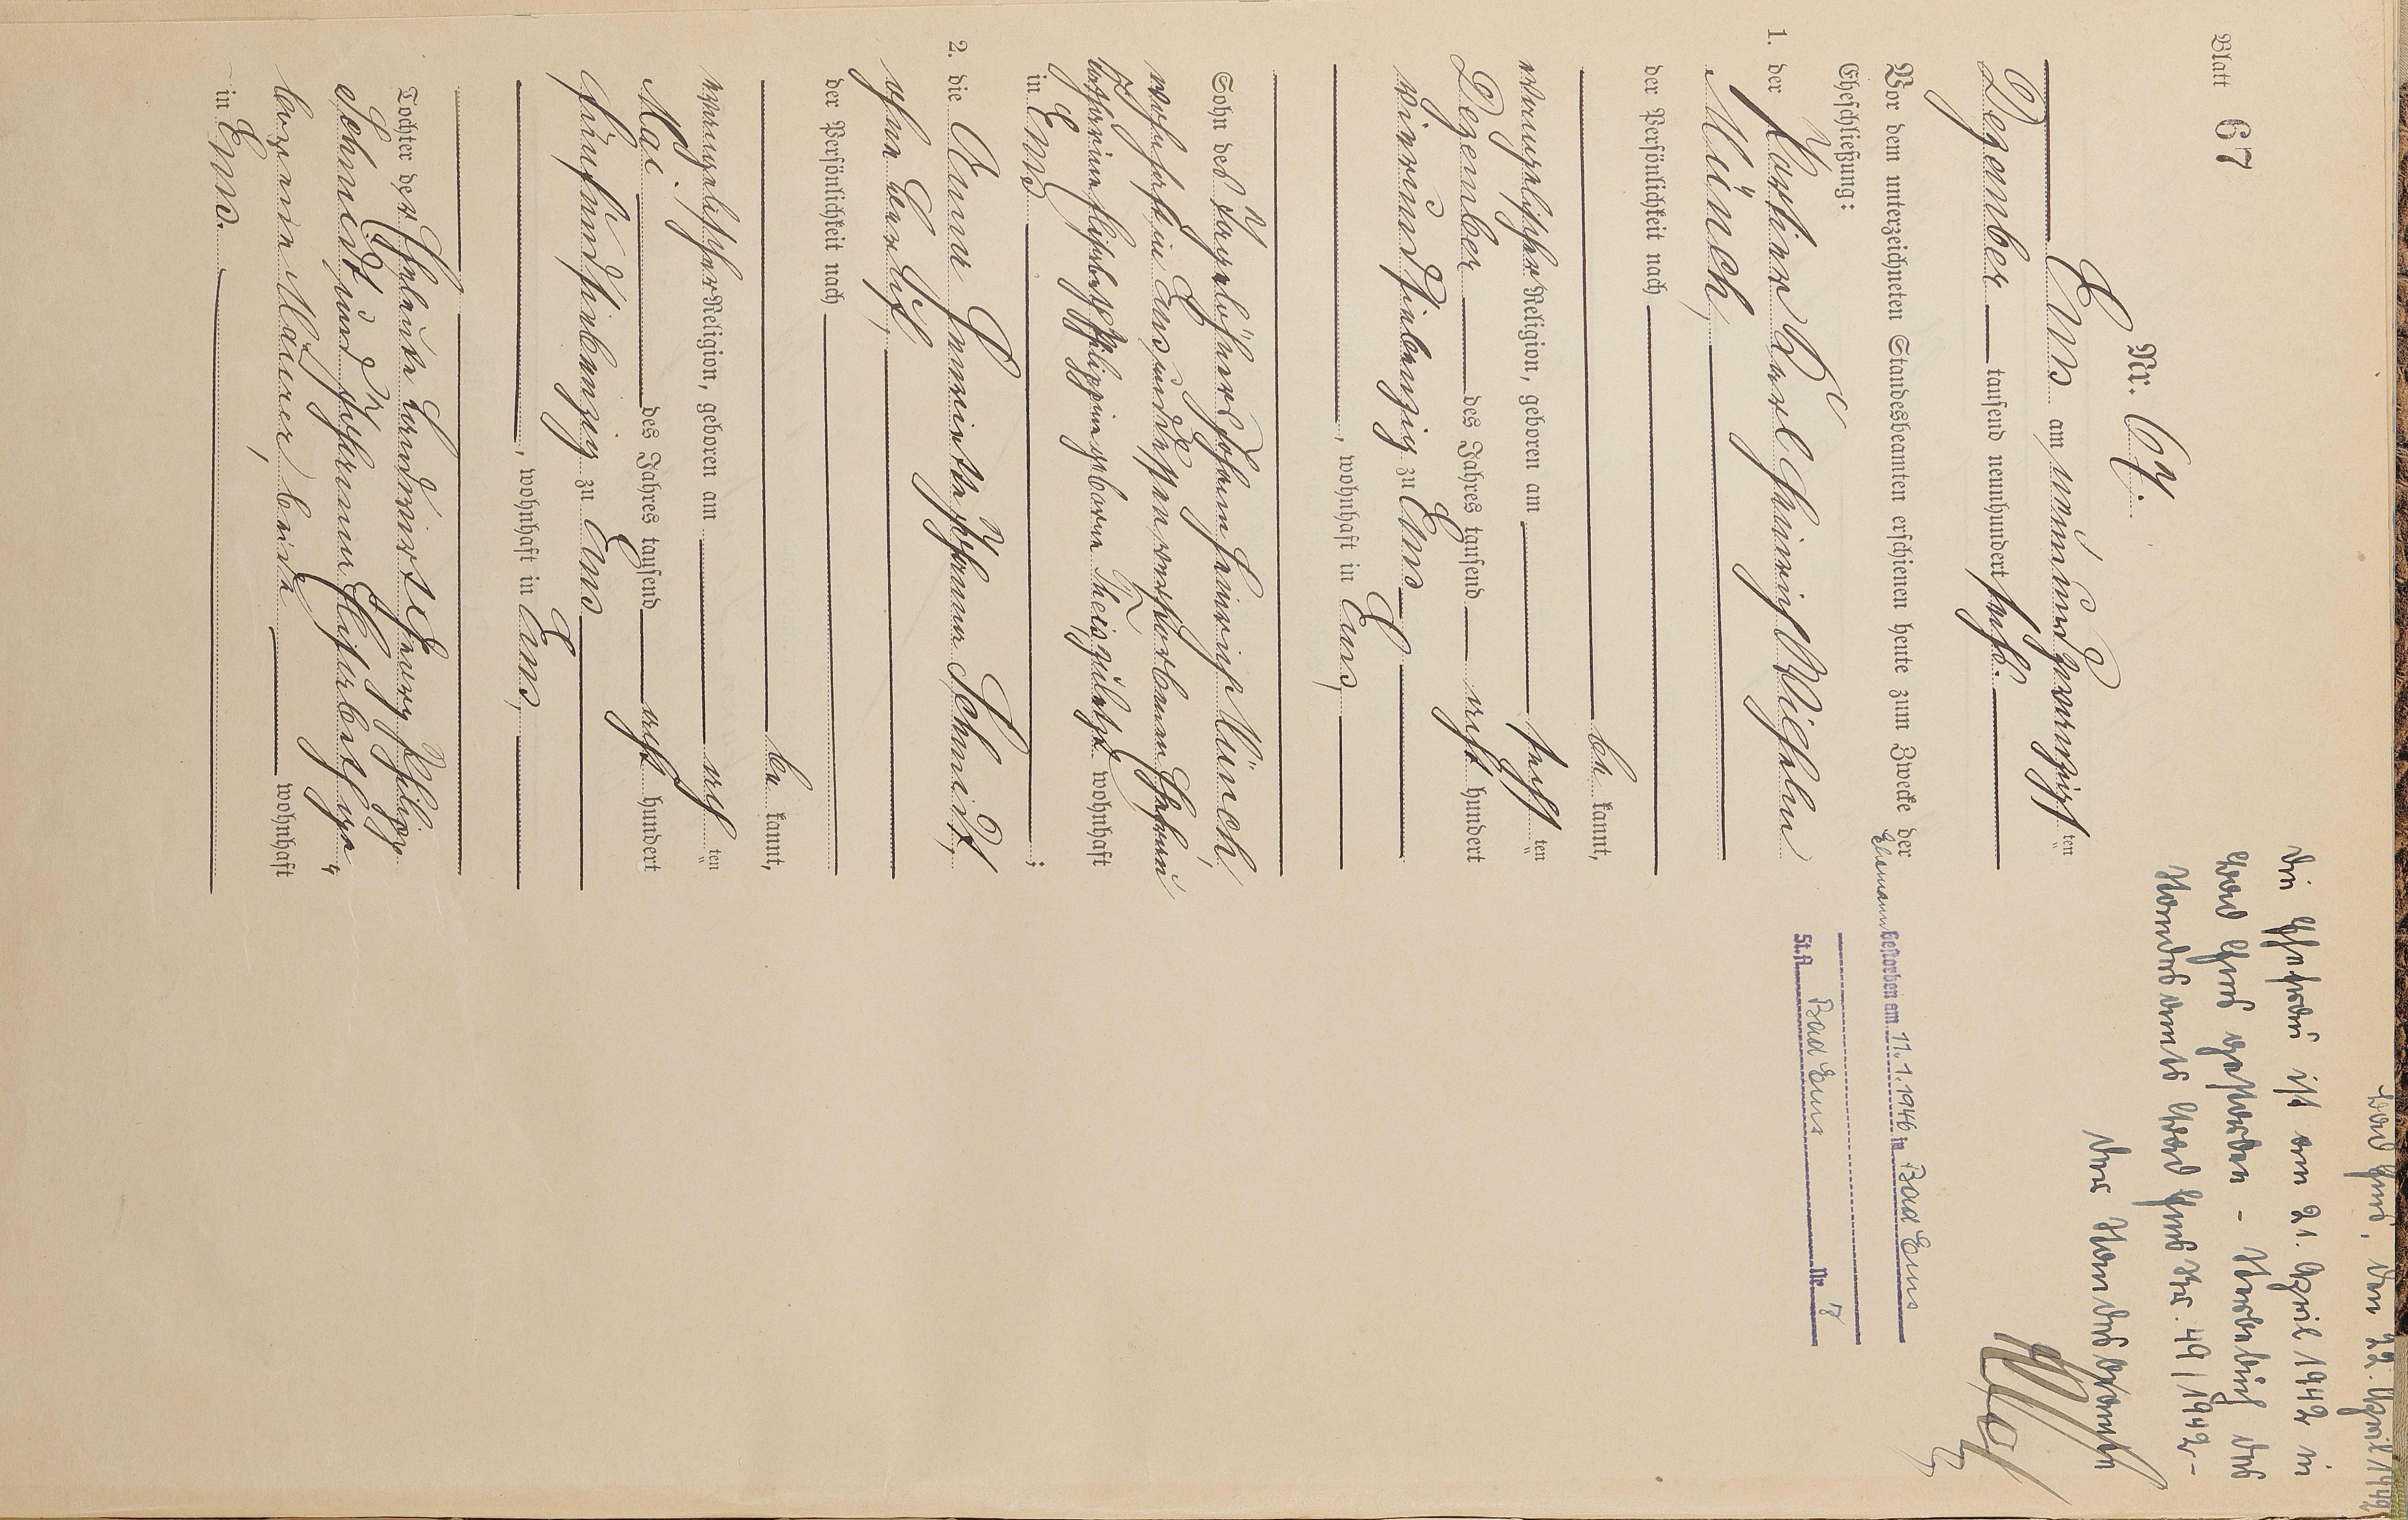 Blatt 67
Nr. 67.
Ems am neunundzwanzigsten
Dezember tausend neunhundert sechs.
Vor dem unterzeichneten Standesbeamten erschienen heute zum Zwecke der
Eheschließung:
1. der Karl Heinrich Wilhelm
Münch,
der Persönlichkeit nach
be kannt,
evangelischer Religion, geboren am sechsten
Dezember des Jahres tausend acht hundert
vierundsiebenzig zu Ems
, wohnhaft in Ems,
Sohn des Taglöhners Johann Heinrich Münch,
wohnhaft in Ems, und dessen verstorbenen Ehefrau
Philippine geborne Theis, zuletzt wohnhaft
in Ems ;
2. die Anna Henriette Johanna Schmidt,
ohne Beruf,
der Persönlichkeit nach
be kannt,
evangelischer Religion, geboren am achten
Mai des Jahres tausend acht hundert
fünfundsiebenzig zu Ems
, wohnhaft in Ems,
Tochter der Eheleute Landwirt Georg Philipp
Schmidt und Johanna Elisabeth ge-
borene Maurer, beide wohnhaft
in Ems.
Bad Ems, den 22. April 1942
Die Ehefrau ist am 21. April 1942 in
Bad Ems gestorben - Sterbebuch des
Standesamts Bad Ems Nr. 49/1942-
Der Standesbeamte
Ehemann Gestorben am 11.1.1946 in Bad Ems
St.A. Bad Ems Nr. 7